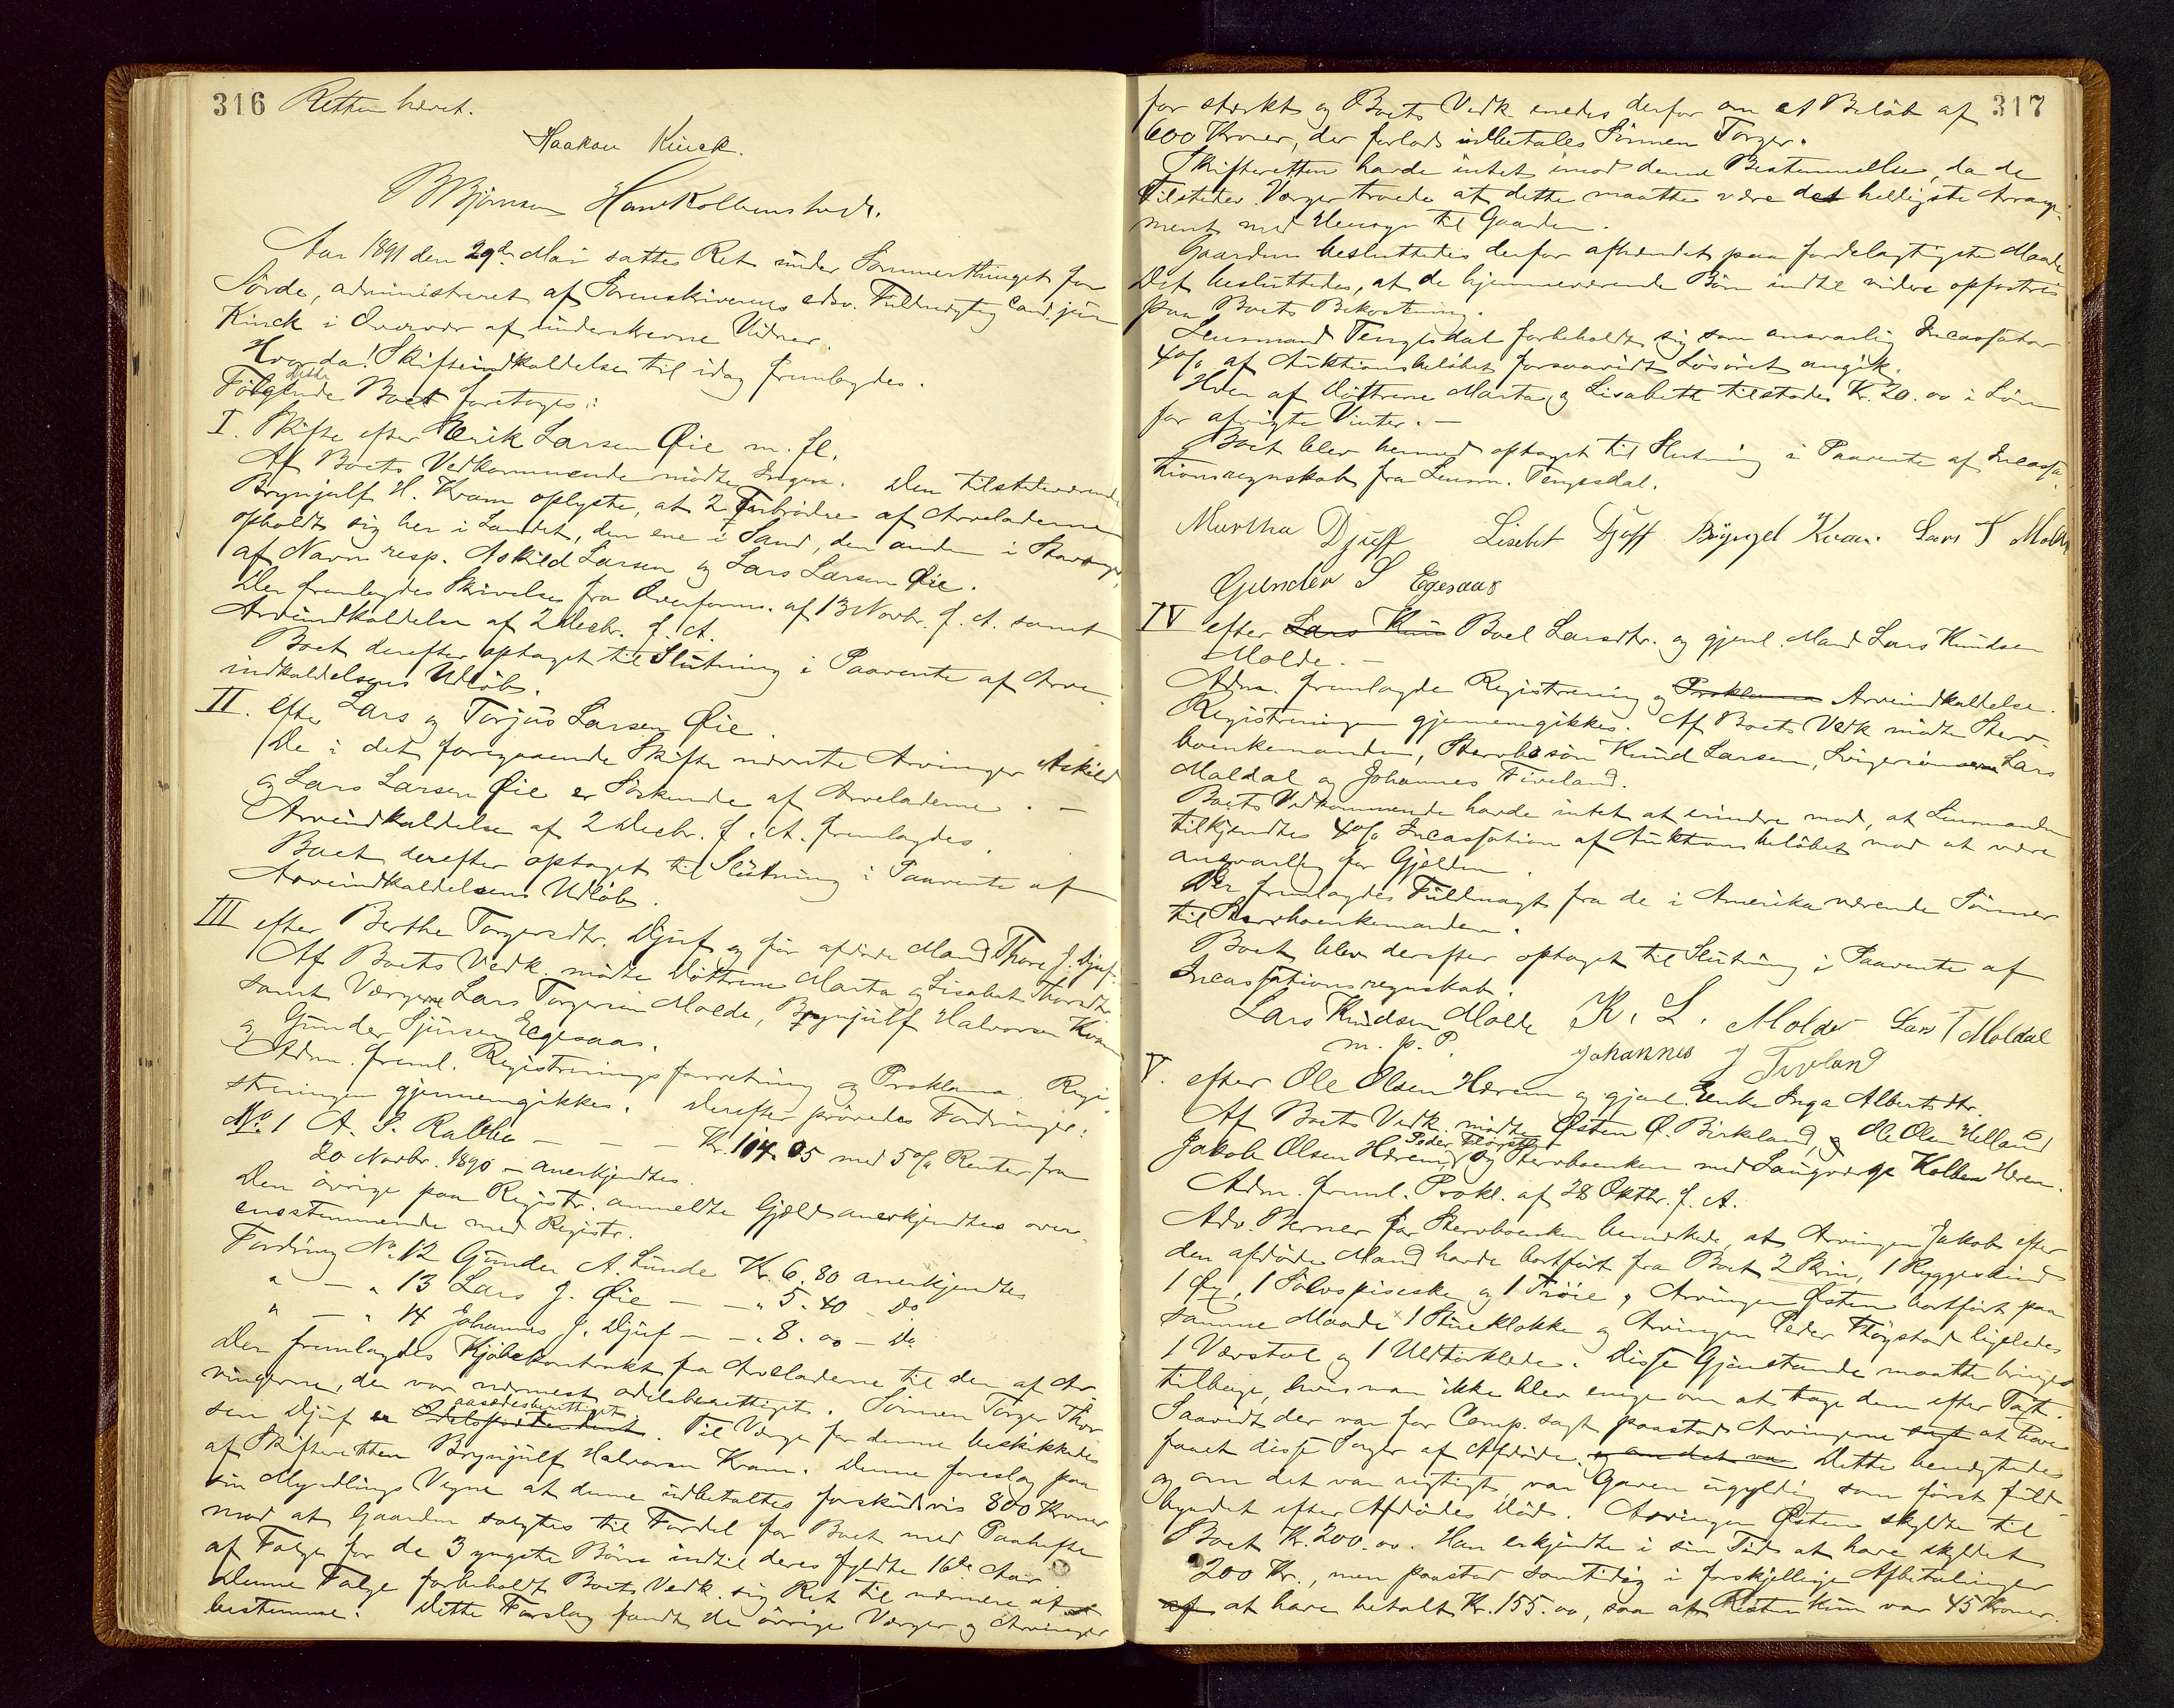 316 Retten hævet.
Haakon Kinck.
B Bjørnsen Hans Kolbenstvedt.
Aar 1891 den 29de Mai sattes Ret under Sommerthinget for
Søvde, administreret af Sorenskriverens edsv. Fuldmægtig Cand. jur
Kinck i Overvær af underskrevne Vidner.
Hvorda! Skifteindkaldelse til idag fremlagdes.
Følgende Boet foretoges:
I. Skifte efter Erik Larsen Øie m. fl.
Af Boets Vedkommende mødte Ingen. Den tilstedeværende
Brynjulf H. Kvam oplyste, at 2 Farbrødre af Arveladerne
opholdt sig her i Landet, den ene i Sand, den anden i Stavanger,
af Navn resp. Askild Larsen og Lars Larsen Øie.
Der fremlagdes Skrivelse fra Overform. af 13 Novbr. f. A. samt
Arveindkaldelse af 2 Decbr. f. A.
Boet derefter optaget til Slutning i Paavente af Arve-
indkaldelsens Udløb.
II. efter Lars og Torjus Larsen Øie.
De i det foregaaende Skifte nævnte Arvinger Askild
og Lars Larsen Øie er Søskende af Arveladerne. –
Arveindkaldelse af 2 Decbr. f. A. fremlagdes.
Boet derefter optaget til Slutning i Paavente af
Arveindkaldelsens Udløb.
III efter Berthe Torgersdtr. Djuf og før afdøde Mand Thore J. Djuf.
Af Boets Vedk. mødte Døttrene Marta og Lisabet Thoresdtr
samt Værgerne Lars Torgersen Molde, Brynjulf Halvorsen Kvam
og Gunder Sjursen Egesaas.
Adm. freml. Registreringsforretning og Proklama. Regi-
streringen gjennemgikkes. Derefter prøvedes Fordringer:
No. 1 A. S. Rabbe – – – Kr. 104.05 med 5% Renter fra
20 Novbr. 1890 – anerkjendtes.
Den øvrige paa Registr. anmeldte Gjæld anerkjendtes over-
ensstemmende med Registr.
Fordring No. 12 Gunder A. Lunde Kr. 6.80 anerkjendtes
" – " 13 Lars J. Øie – – " 5.40 – Do
" – " 14 Johannes J. Djuf – – " 8.00 – Do
Der fremlagdes Kjøbekontrakt fra Arveladerne til den af Ar-
vingerne, der var nærmest odelsberettiget. Sønnen Torger Thor-
aasædesberettiget
sen Djuf er . Til Værge for denne beskikkedes
af Skifteretten Brynjulf Halvorsen Kvam. Denne foreslog paa
sin Myndlings Vegne at denne udbetaltes forskudvis 800 Kroner
mod at Gaarden solgtes til Fordel for Boet med Paahefte
af Følge for de 3 yngste Børn indtil deres fyldte 16de Aar.
Denne Følge forbeholdt Boets Vedk. sig Ret til nærmere at
bestemme. Dette Forslag fandt de øvrige Værger og Arvinger
317
for sterkt og Boets Vedk. enedes derfor om et Beløb af
600 Kroner, der forlods udbetales Sønnen Torger.
Skifteretten havde intet imod denne Bestemmelse, da de
tilstedev. Værger troede at dette maatte være det heldigste Arrange-
ment med Hensyn til Gaarden.
Gaarden besluttedes derfor afhændet paa fordelagtigste Maade
Det besluttedes, at de hjemmeværende Børn indtil videre opfostres
paa Boets Bekostning.
Lensmand Tengesdal forbeholdt sig som ansvarlig Incassator
4% af Auktionsbeløbet forsaavidt Løsøret angik.
Hver af Døttrene Marta og Lisabette tilstodes Kr. 20.00 i Løn
for afvigte Vinter. –
Boet blev hermed optaget til Slutning i Paavente af Incassa-
tionsregnskab fra Lensm. Tengesdal.
Martha Djuff Lisebet Djuff Brynjel Kvam Lars T Molde
Gunder S Egesaas
IV efter Lars Knu Boel Larsdtr. og gjenl. Mand Lars Knudsen
Molde. –
Adm. fremlagde Registrering og Proklama Arveindkaldelse.
Registreringen gjennemgikkes. Af Boets Vedk mødte Sterv-
boenkemanden, Stervbosøn Knud Larsen, Svigersønnerne Lars
Moldal og Johannes Tiveland.
Boets Vedkommende havde intet at erindre mod, at Lensmanden
tilkjendtes 4% Incassation af Auktionsbeløbet mod at være
ansvarlig for Gjælden.
Der fremlagdes Fuldmagt fra de i Amerika værende Sønner
til Stervboenkemanden.
Boet blev derefter optaget til Slutning i Paavente af
Incassationsregnskab.
Lars Knudsen Molde K. L. Molde Lars T Moldal
m. p. P. Johannes J Tiveland
V. efter Ole Olsen Hereim og gjenl. Enke Inga Albertsdtr.
Af Boets Vedk. mødte Østen O. Birkland, og Ole Olsen Helland
Peder Fløgstad
Jakob Olsen Hereim, og Stervboenken med Laugværge Kolben Hereim.
Adm. freml. Prokl. af 28 Oktbr. f. A.
Adv. Berner for Stervboenken bemerkede, at Arvingen Jakob efter
den afdøde Mand havde bortført fra Boet 2 Skrin, 1 Ryggeskind
1 Øg, 1 Sølvspiseske og 1 Trøie, Arvingen Østen bortført paa
samme Maade 1 Stueklokke og Arvingen Peder Fløgstad ligeledes
1 Vævstol og 1 Uldtørklæde. Disse Gjenstande maatte bringes
tilbage, hvis man ikke blev enige om at tage dem efter Taxt.
Saavidt der var for Comp. sagt paastod Arvingerne sagt at have
faaet disse Sager af Afdøde. og om det va Dette benegtedes
og om det var rigtigt, var Gaven ugyldig som først fuld-
byrdet efter Afdødes Død. Arvingen Østen skyldte til
Boet Kr. 200.00. Han erkjendte i sin Tid at have skyldet
200 Kr., men paastod samtidig i forskjellige Afbetalinger
af at have betalt Kr. 155.00, saa at Resten kun var 45 Kroner.